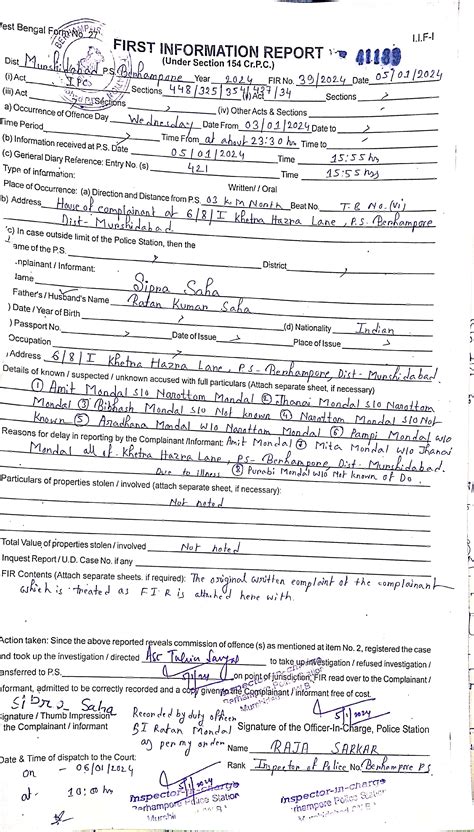 West Bengal Form No. 27
I.I.F-I
FIRST INFORMATION REPORT
41189
(Under Section 154 Cr.P.C.)
Dist Murshidabad P.S. Berhampore Year 2024 FIR No. 39/2024 Date 05/01/2024
(i) Act IPC Sections 448/325/354/427/34 (ii) Act Sections
(iii) Act Sections (iv) Other Acts & Sections
a) Occurrence of Offence Day Wednesday Date From 03/01/2024 Date to
Time Period Time From at about 23:30 hrs Time to
(b) Information received at P.S. Date 05/01/2024 Time 15:55 hrs
(c) General Diary Reference: Entry No. (s) 421 Time 15:55 hrs
Type of information: Written / Oral
Place of Occurence: (a) Direction and Distance from P.S. 03 KM North Beat No. T.B No. (vi)
b) Address House of complainant at 6/8/I Khetra Hazra Lane, P.S- Berhampore
Dist- Murshidabad.
c) In case outside limit of the Police Station, then the
ame of the P.S. District
mplainant / Informant:
lame Sipra Saha
Father's / Husband's Name Ratan Kumar Saha
) Date / Year of Birth (d) Nationality Indian
) Passport No. Date of Issue Place of Issue
Occupation
Address 6/8/I Khetra Hazra Lane, P.S- Berhampore, Dist- Murshidabad
Details of known / suspected / unknown accused with full particulars (Attach separate sheet, if necessary)
① Amit Mondal S/o Narottam Mondal ② Jhanai Mondal S/o Narottam
Mondal ③ Bibhash Mondal S/o Not known ④ Narottam Mondal S/o Not
Known ⑤ Aradhana Mondal w/o Narottam Mondal ⑥ Pampi Mondal w/o
Reasons for delay in reporting by the Complainant /Informant: Amit Mondal ⑦ Mita Mondal w/o Jhanai
Mondal all of Khetra Hazra Lane, P.S- Berhampore, Dist- Murshidabad.
Due to illness. ⑧ Purabi Mondal w/o Not known of Do.
Particulars of properties stolen / involved (attach separate sheet, if necessary):
Not noted
Total Value of properties stolen / involved Not noted
Inquest Report / U.D. Case No. if any
FIR Contents (Attach separate sheets. if required): The original written complaint of the complainant
which is treated as F I R is attached here with.
Action taken: Since the above reported reveals commission of offence (s) as mentioned at item No. 2, registered the case
and took up the investigation / directed ASI to take up investigation / refused investigation /
ansferred to P.S. on point of jurisdiction, FIR read over to the Complainant /
nformant, admitted to be correctly recorded and a copy given to the Complainant / informant free of cost.
Sipra Saha
Signature / Thumb Impression
the Complainant / informant
Recorded by duty officer
SI Ratan Mondal
as per my order
Signature of the Officer-In-Charge, Police Station
Name RAJA SARKAR
Rank Inspector of Police No. Berhampore PS.
Date & Time of dispatch to the Court:
on - 06/01/2024
at - 10:00 hrs
5/1/2024
Inspector-in-charge
Berhampore Police Station
Inspector-in-Charge
Berhampore Police Station
Murshidabad